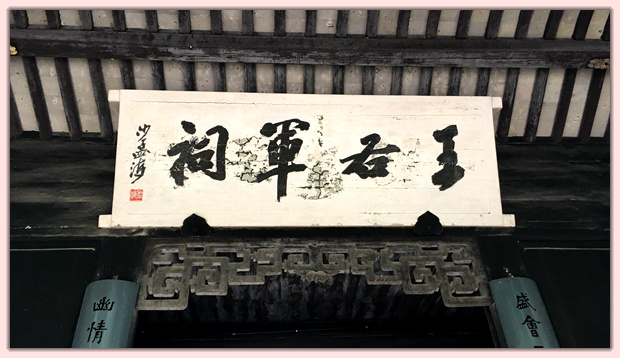 王右軍祠
沙孟海
盛會
幽情